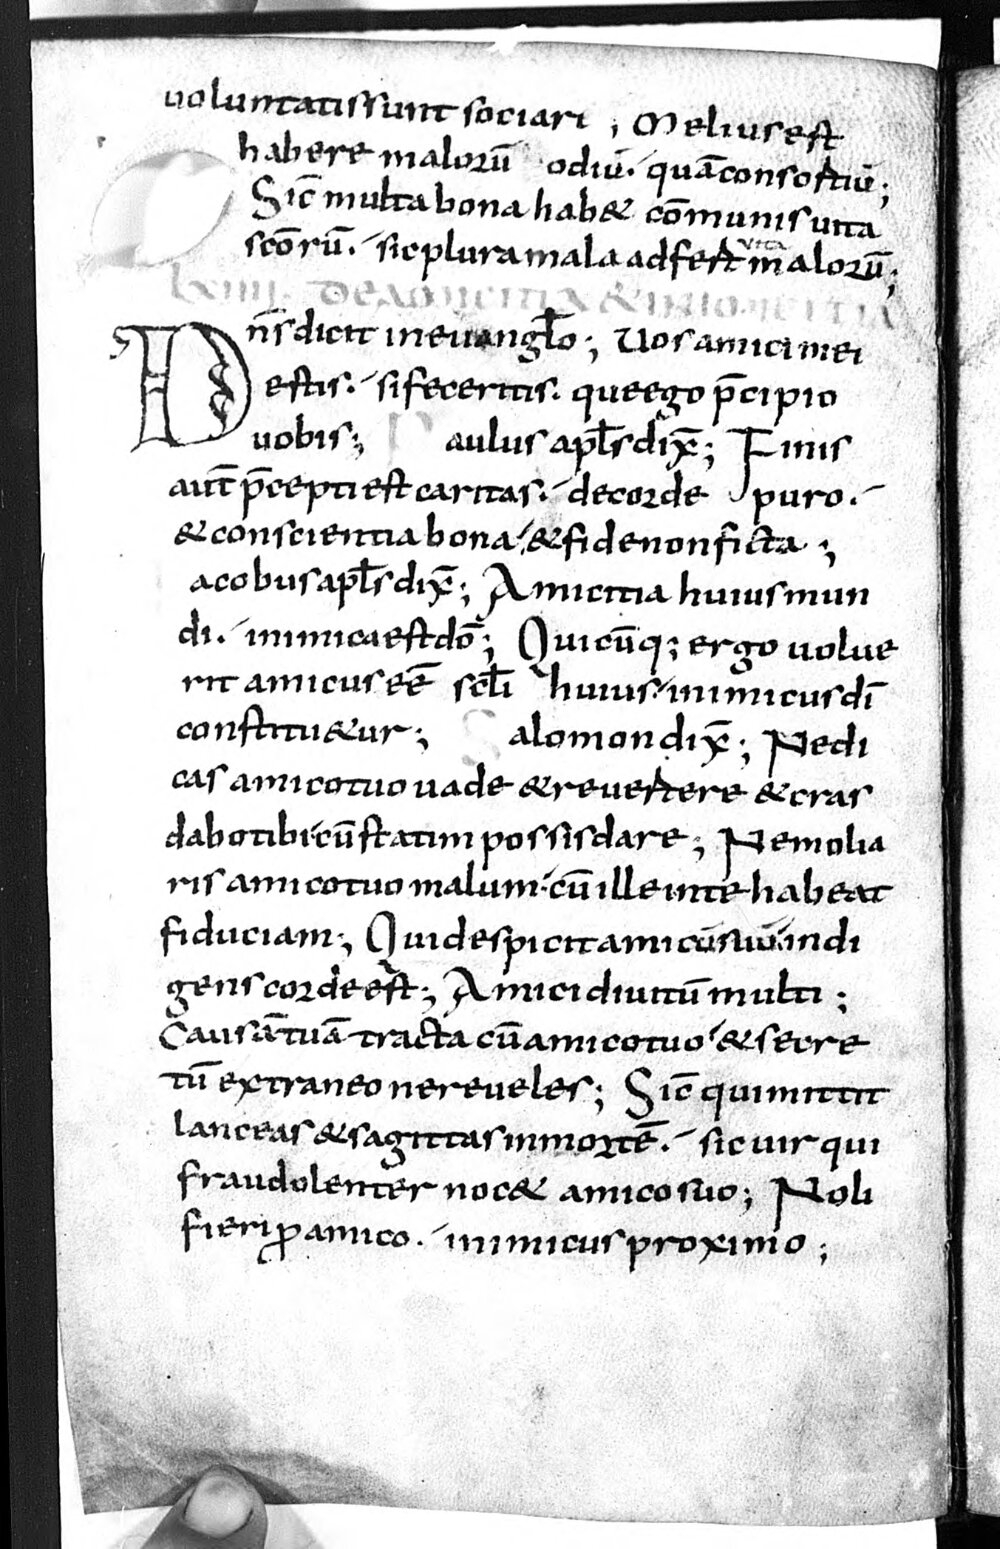 uoluntatissunt sociari ; Melius est
habere malorū odiū. quā consortiū ;
Sic̄ multa bona hab& cōmunis uita
scōrū. sic plura mala adfert uita malorū ;
lxiiii. De amicitia & inimicitia
Dn̄s dicit in euangl̄o ; Uos amici mei
estis. si feceritis. que ego p̄cipio
uobis ; Paulus apl̄s dix̄ ; Finis
aut̄ p̄cepti est caritas. de corde puro.
& conscientia bona, & fide non ficta ;
acobus apl̄s dix̄ ; Amicitia huius mun
di. inimica est dō ; Quicūq; ergo uolue
rit amicus eē scl̄i huius. inimicus dī
constitu&ur ; Salomon dix̄ ; Ne di
cas amico tuo uade & reuertere & cras
dabo tibi. cū statim possis dare ; Ne molia
ris amico tuo malum. cū ille in te habeat
fiduciam ; Qui despicit amicū suū. indi
gens corde est ; Amici diuitū multi ;
Causā tuā tracta cū amico tuo & secre
tū extraneo ne reueles ; Sic̄ qui mittit
lanceas & sagittas in mortē. sic uir qui
fraudolenter noc& amico suo ; Noli
fieri ꝓ amico. inimicus proximo ;